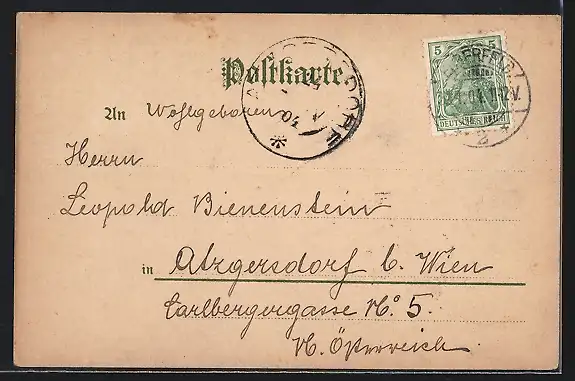 Postkarte
5 5
DEUTSCHES REICH
An Wohlgeboren
Herrn
Leopold Bienenstein
in Atzgersdorf b. Wien
Carlbergergasse No. 5.
N. Österreich